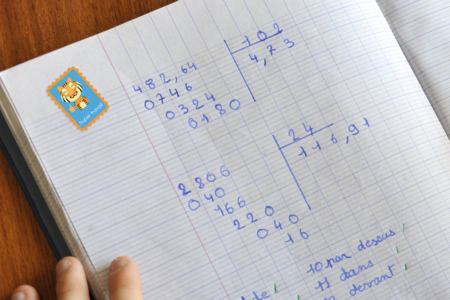 482,64 102
0746 4,73
0324
0180
2806 24
040 116,91
166
220
040
16
10 par dessus
11 dans
devant